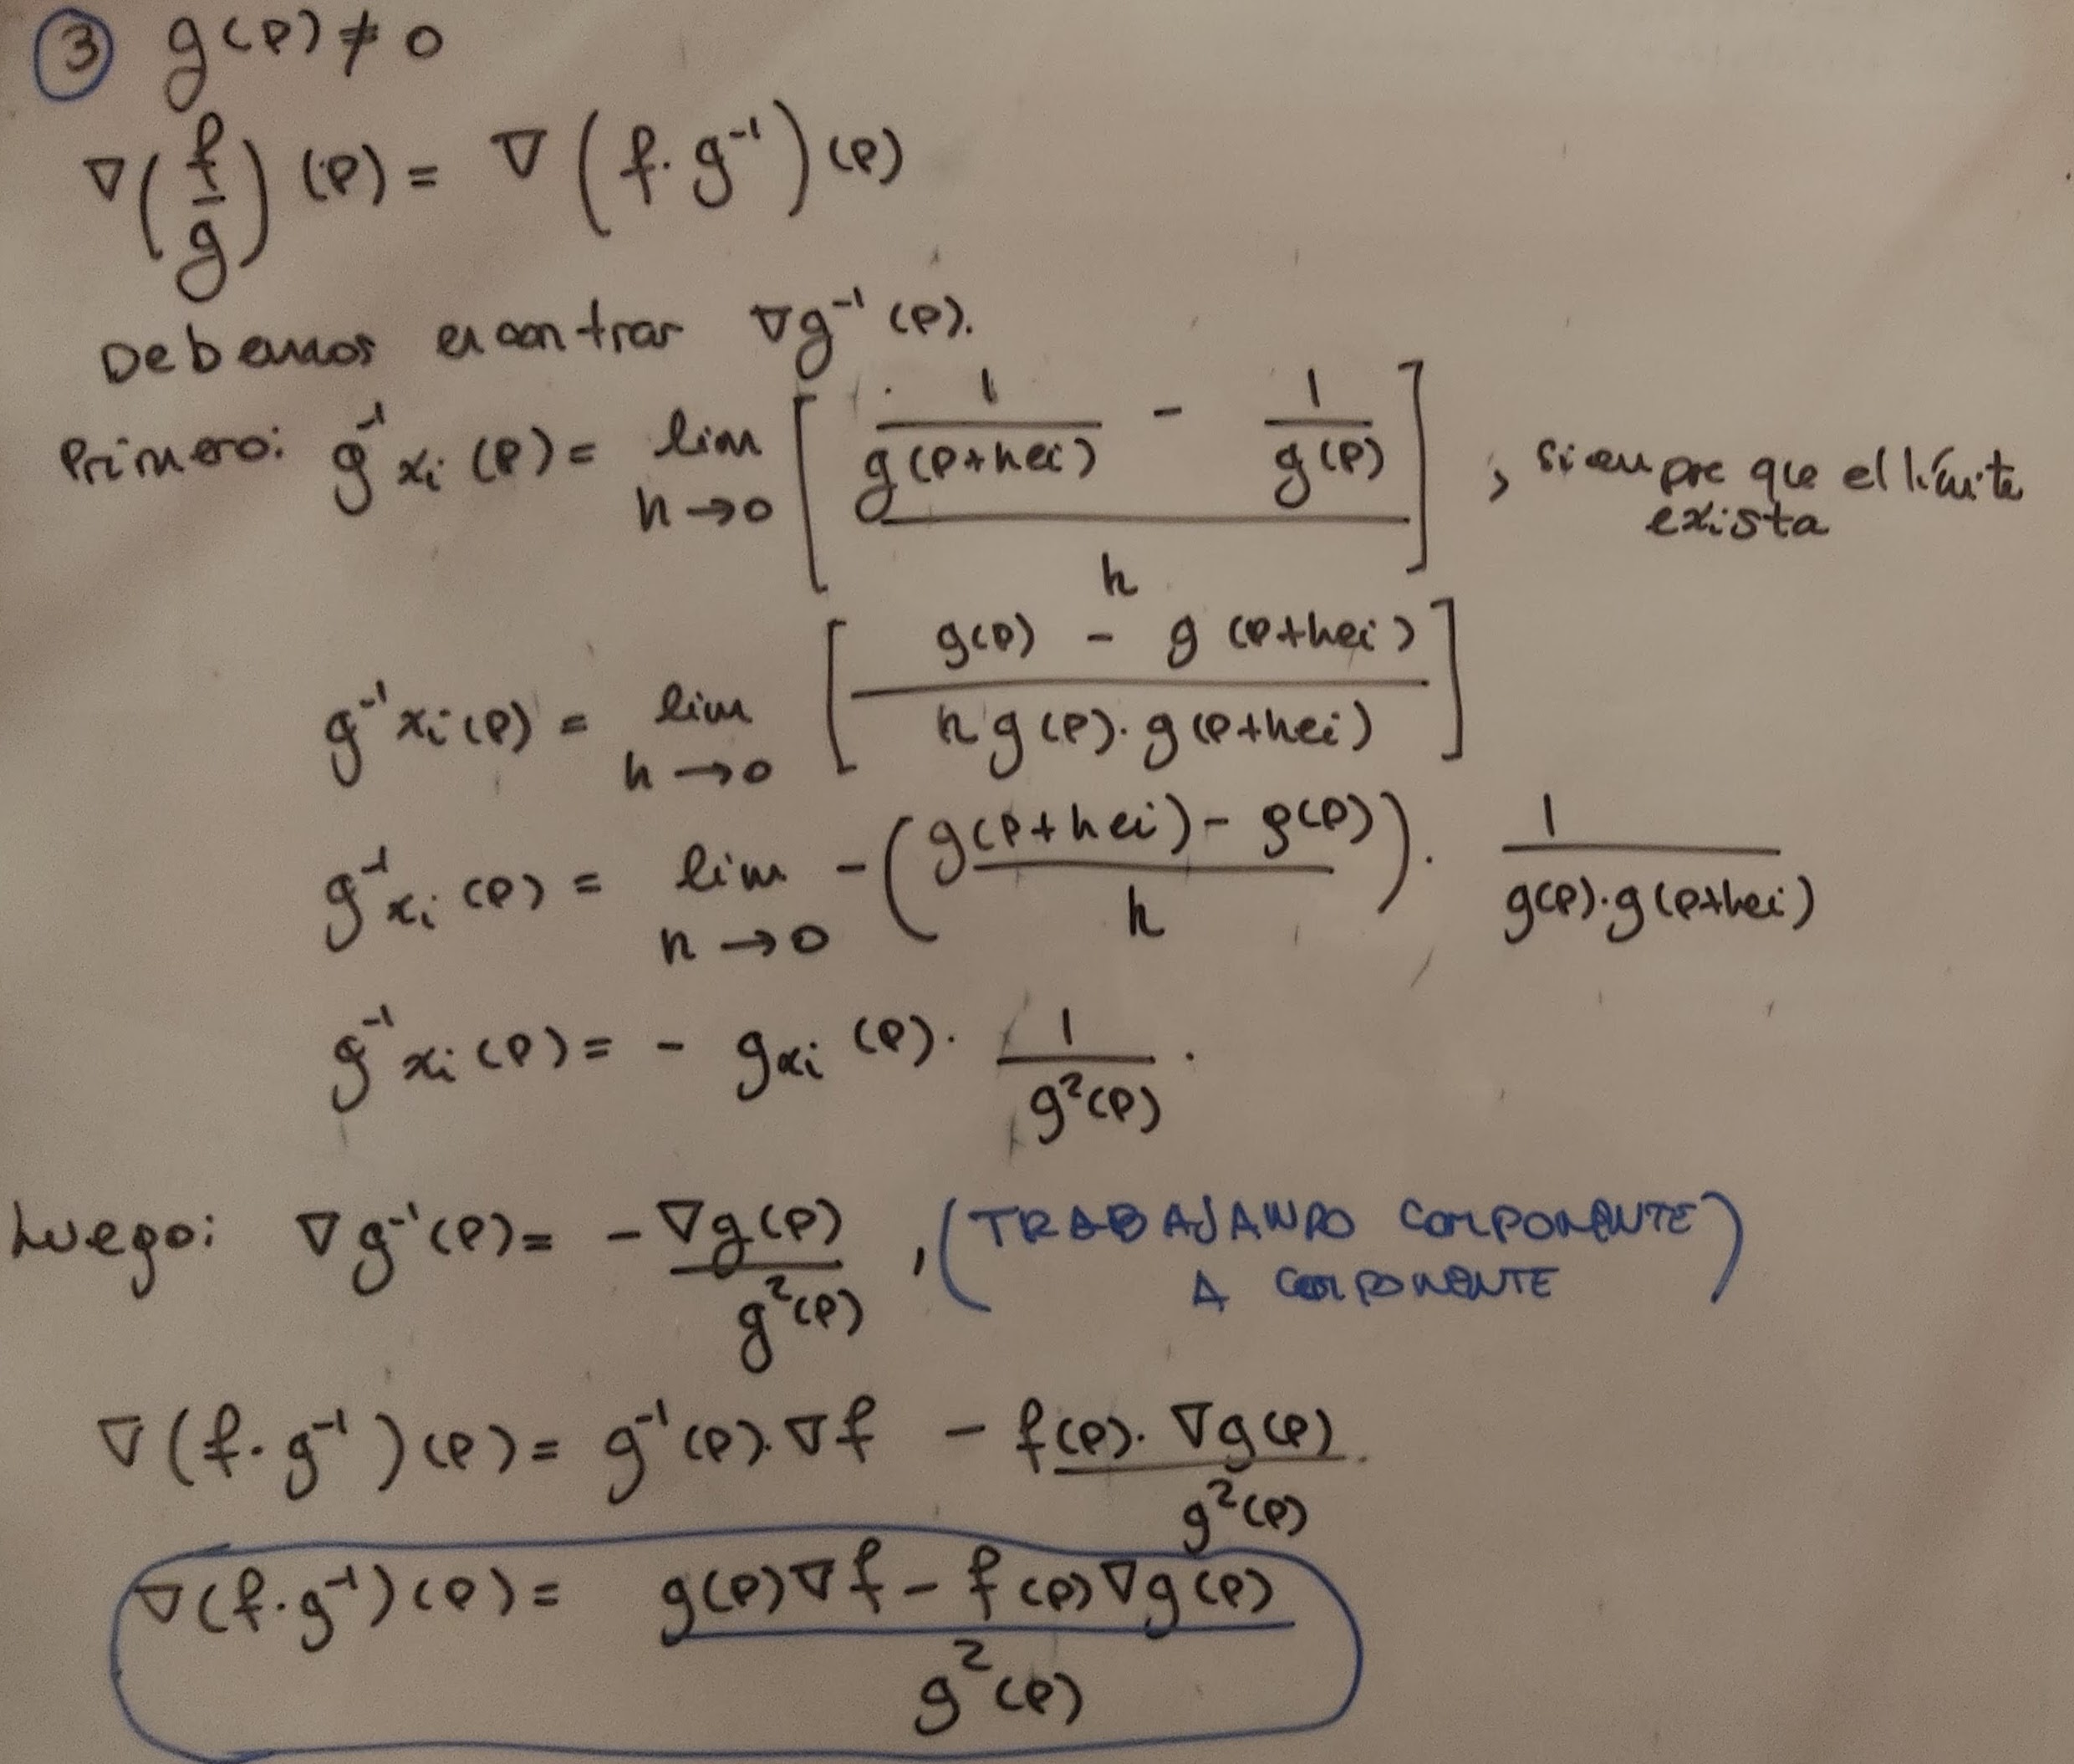 ③ g(P) ≠ 0
∇(f/g)(P) = ∇(f·g⁻¹)(P)
Debemos encontrar ∇g⁻¹(P).
Primero: g⁻¹xᵢ(P) = lim h→0 [ (1/g(P+hei) − 1/g(P)) / h ] , siempre que el límite exista
g⁻¹xᵢ(P) = lim h→0 [ (g(P) − g(P+hei)) / (h g(P)·g(P+hei)) ]
g⁻¹xᵢ(P) = lim h→0 −( (g(P+hei) − g(P)) / h ) · 1 / (g(P)·g(P+hei))
g⁻¹xᵢ(P) = − gxᵢ(P) · 1/g²(P) .
Luego: ∇g⁻¹(P) = −∇g(P) / g²(P) , (TRABAJANDO COMPONENTE
A COMPONENTE)
∇(f·g⁻¹)(P) = g⁻¹(P)·∇f − f(P)·∇g(P) / g²(P) .
∇(f·g⁻¹)(P) = (g(P)∇f − f(P)∇g(P)) / g²(P)